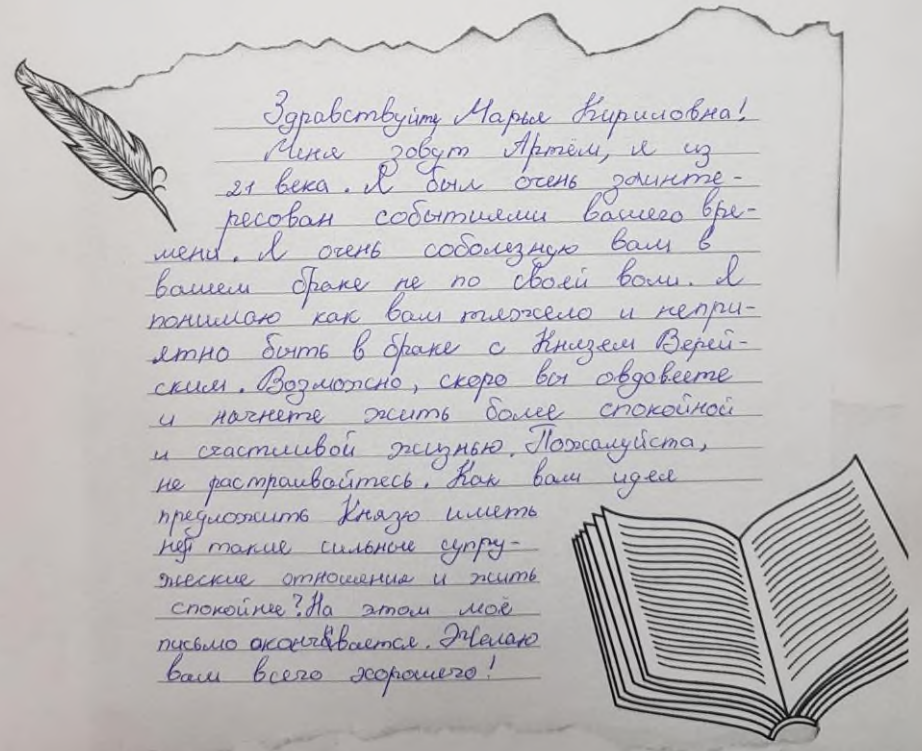 Здравствуйте Марья Кириловна!
Меня зовут Артём, я из
21 века. Я был очень заинте-
ресован событиями вашего вре-
мени. Я очень соболезную вам в
вашем браке не по своей воли. Я
понимаю как вам тяжело и непри-
ятно быть в браке с Князем Верей-
ским. Возможно, скоро вы овдовеете
и начнете жить более спокойной
и счастливой жизнью. Пожалуйста,
не растраивайтесь. Как вам идея
предложить Князю иметь
не такие сильные супру-
жеские отношения и жить
спокойнее? На этом моё
письмо оканчивается. Желаю
вам всего хорошего!